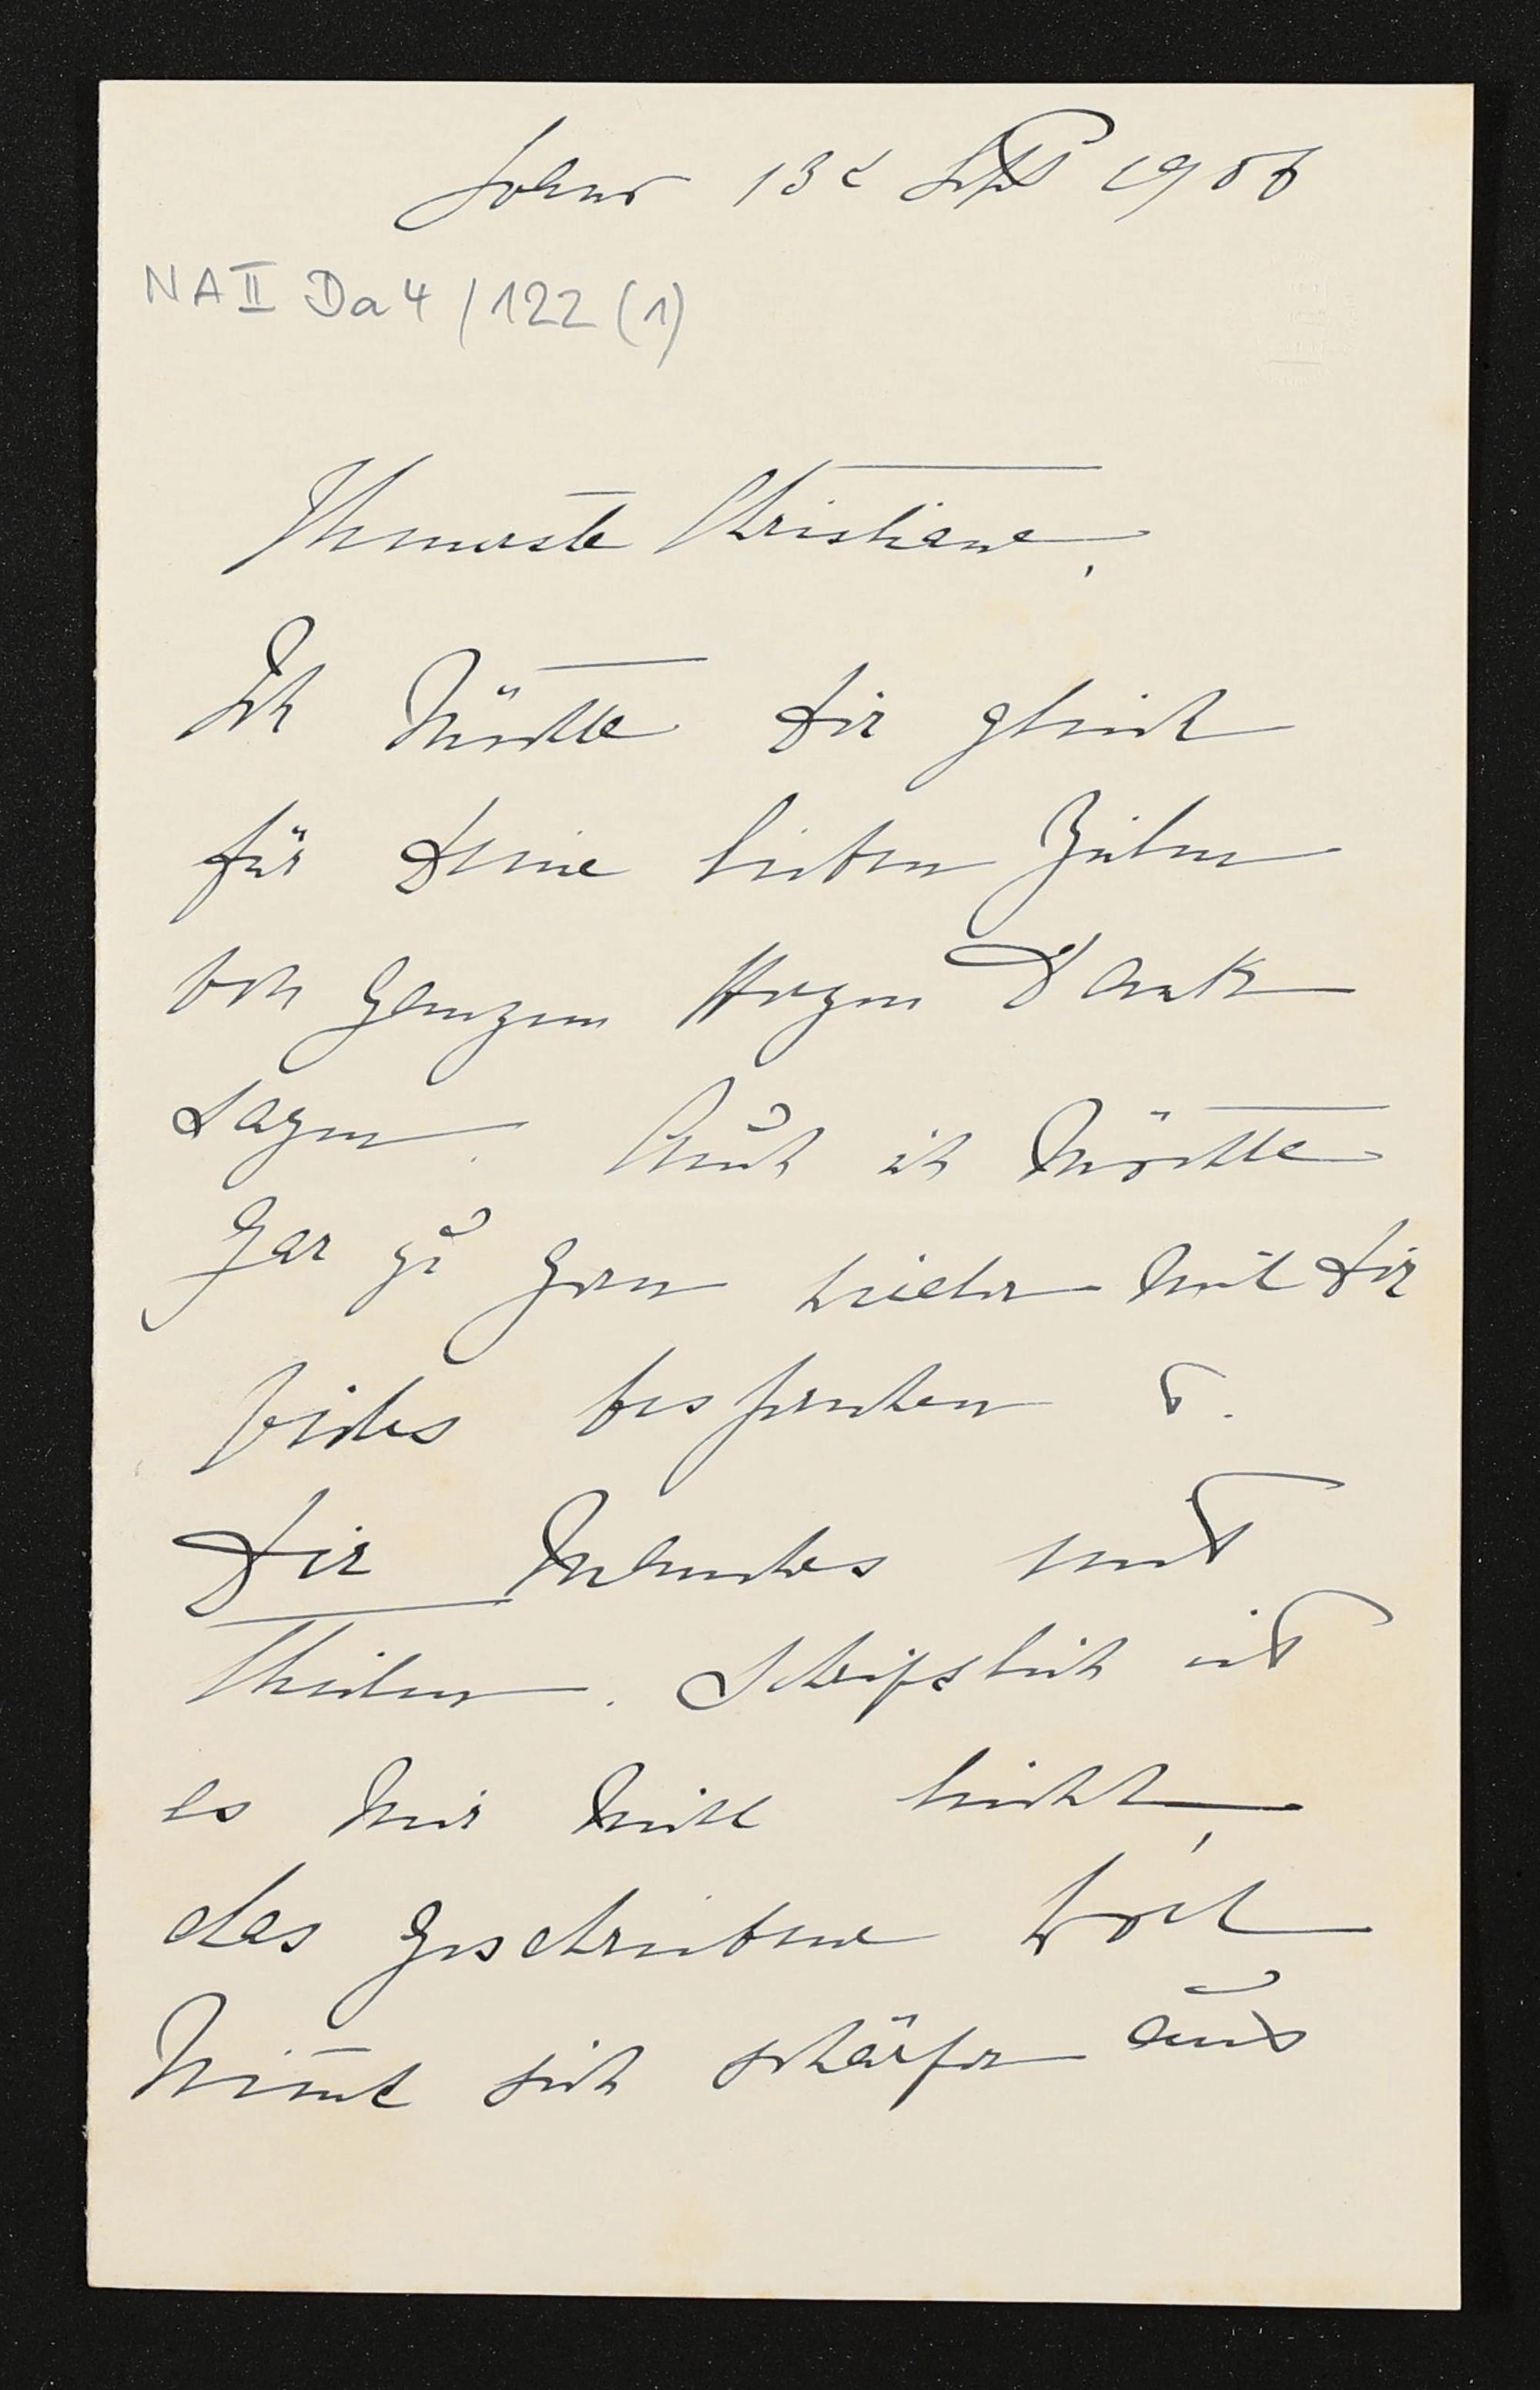 13 Sept 1906
NA II Da 4 / 122 (1)
Theuerste Christiane,
Ich möchte Dir gleich
für Deine lieben Zeilen
von ganzem Herzen Dank
sagen. Auch ich möchte
gar zu gern wieder mit Dir
Vieles besprechen u.
Dir Manches mit
theilen. Schriftlich ist
es mir nicht leicht,
das geschriebene Wort
nim̄t sich schärfer aus